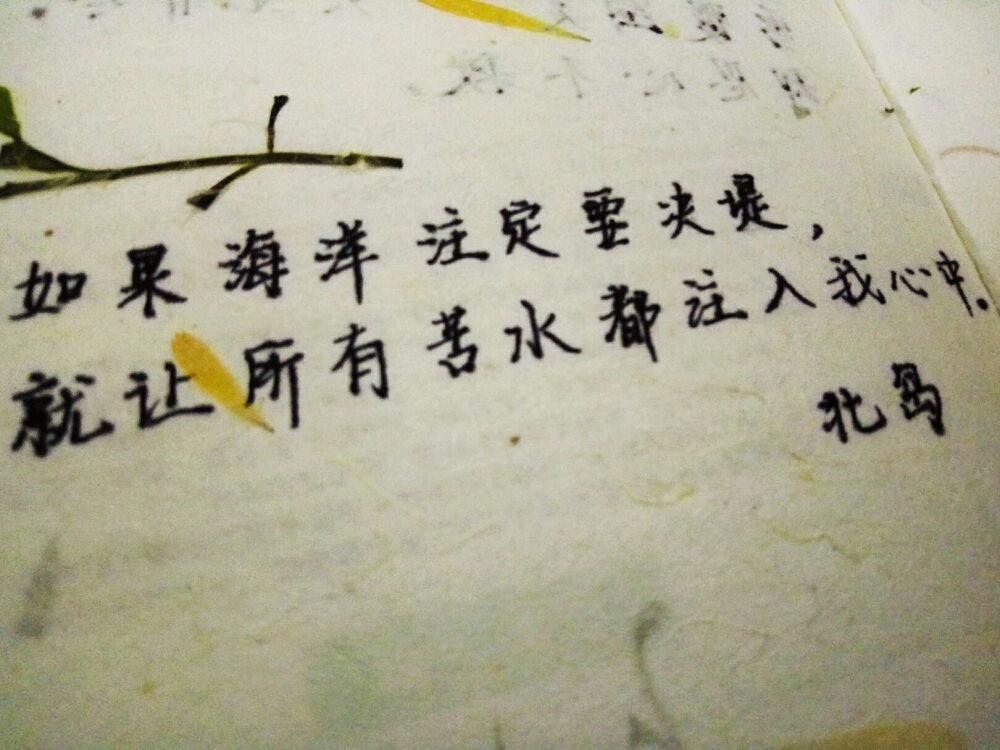 如果海洋注定要决堤，
就让所有苦水都注入我心中。
北岛